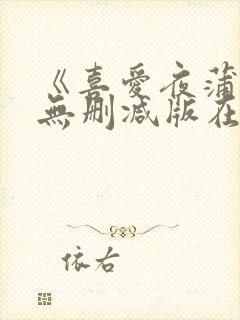 《喜愛夜蒲
無删减版在
依右